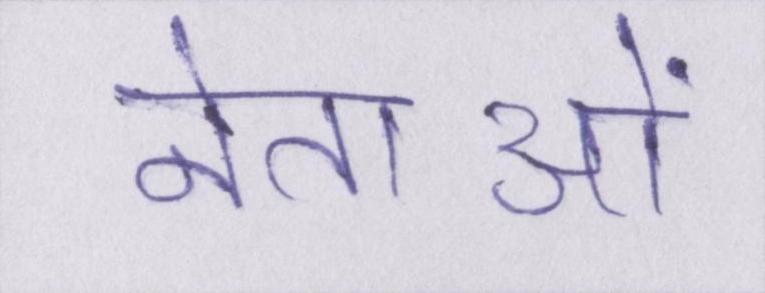 नेताओं